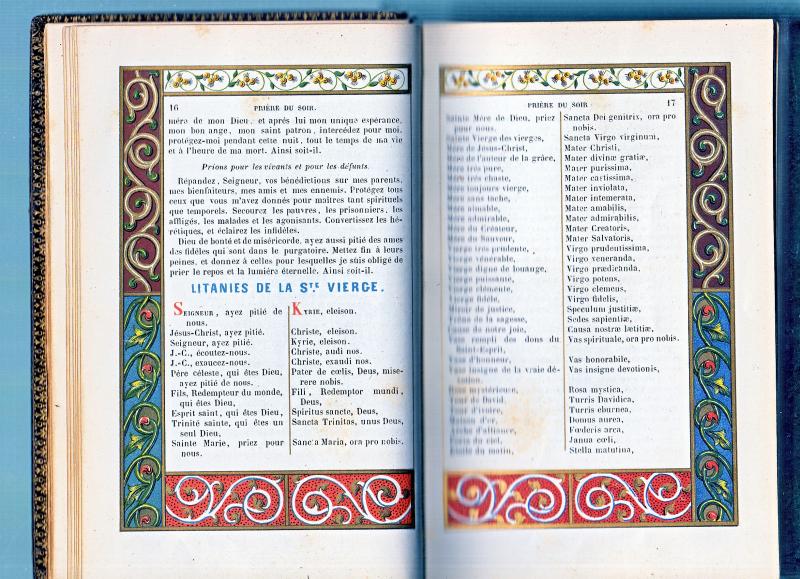 16
PRIÈRE DU SOIR.
mère de mon Dieu, et après lui mon unique espérance,
mon bon ange, mon saint patron, intercédez pour moi,
protégez-moi pendant cette nuit, tout le temps de ma vie
et à l'heure de ma mort. Ainsi soit-il.
Prions pour les vivants et pour les défunts.
Répandez, Seigneur, vos bénédictions sur mes parents,
mes bienfaiteurs, mes amis et mes ennemis. Protégez tous
ceux que vous m'avez donnés pour maîtres tant spirituels
que temporels. Secourez les pauvres, les prisonniers, les
affligés, les malades et les agonisants. Convertissez les hé-
rétiques, et éclairez les infidèles.
Dieu de bonté et de miséricorde, ayez aussi pitié des ames
des fidèles qui sont dans le purgatoire. Mettez fin à leurs
peines, et donnez à celles pour lesquelles je suis obligé de
prier le repos et la lumière éternelle. Ainsi soit-il.
LITANIES DE LA STE VIERGE.
SEIGNEUR, ayez pitié de
nous.
Jésus-Christ, ayez pitié.
Seigneur, ayez pitié.
J.-C., écoutez-nous.
J.-C., exaucez-nous.
Père céleste, qui êtes Dieu,
ayez pitié de nous.
Fils, Redempteur du monde,
qui êtes Dieu,
Esprit saint, qui êtes Dieu,
Trinité sainte, qui êtes un
seul Dieu,
Sainte Marie, priez pour
nous.
KYRIE, eleison.
Christe, eleison.
Kyrie, eleison.
Christe, audi nos.
Christe, exaudi nos.
Pater de cœlis, Deus, mise-
rere nobis.
Fili, Redemptor mundi,
Deus,
Spiritus sancte, Deus,
Sancta Trinitas, unus Deus,
Sancta Maria, ora pro nobis.
PRIÈRE DU SOIR
17
Sainte Mère de Dieu, priez
pour nous.
Sainte Vierge des vierges,
Mère de Jesus-Christ,
Mère de l'auteur de la grâce,
Mère très pure,
Mère très chaste,
Mère toujours vierge,
Mère sans tache,
Mère aimable,
Mère admirable,
Mère du Créateur,
Mère du Sauveur,
Vierge très prudente,
Vierge vénérable,
Vierge digne de louange,
Vierge puissante,
Vierge clémente,
Vierge fidèle,
Miroir de justice,
Trône de la sagesse,
Cause de notre joie,
Vase rempli des dons du
Saint-Esprit,
Vase d'honneur,
Vase insigne de la vraie dé-
votion,
Rose mystérieuse,
Tour de David,
Tour d'ivoire,
Maison d'or,
Arche d'alliance,
Porte du ciel,
Etoile du matin,
Sancta Dei genitrix, ora pro
nobis.
Sancta Virgo virginum,
Mater Christi,
Mater divinæ gratiæ,
Mater purissima,
Mater castissima,
Mater inviolata,
Mater intemerata,
Mater amabilis,
Mater admirabilis,
Mater Creatoris,
Mater Salvatoris,
Virgo prudentissima,
Virgo veneranda,
Virgo prædicanda,
Virgo potens,
Virgo clemens,
Virgo fidelis,
Speculum justitiæ,
Sedes sapientiæ,
Causa nostræ lætitiæ,
Vas spirituale, ora pro nobis.
Vas honorabile,
Vas insigne devotionis,
Rosa mystica,
Turris Davidica,
Turris eburnea,
Domus aurea,
Fœderis arca,
Janua cœli,
Stella matutina,